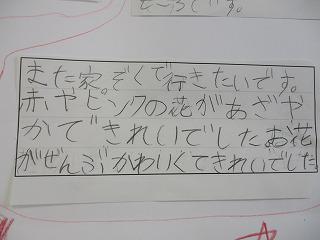 また家。ぞくで行きたいです。
赤やピンクの花があざや
かできれいでしたお花
がぜんぶかわいくてきれいでした